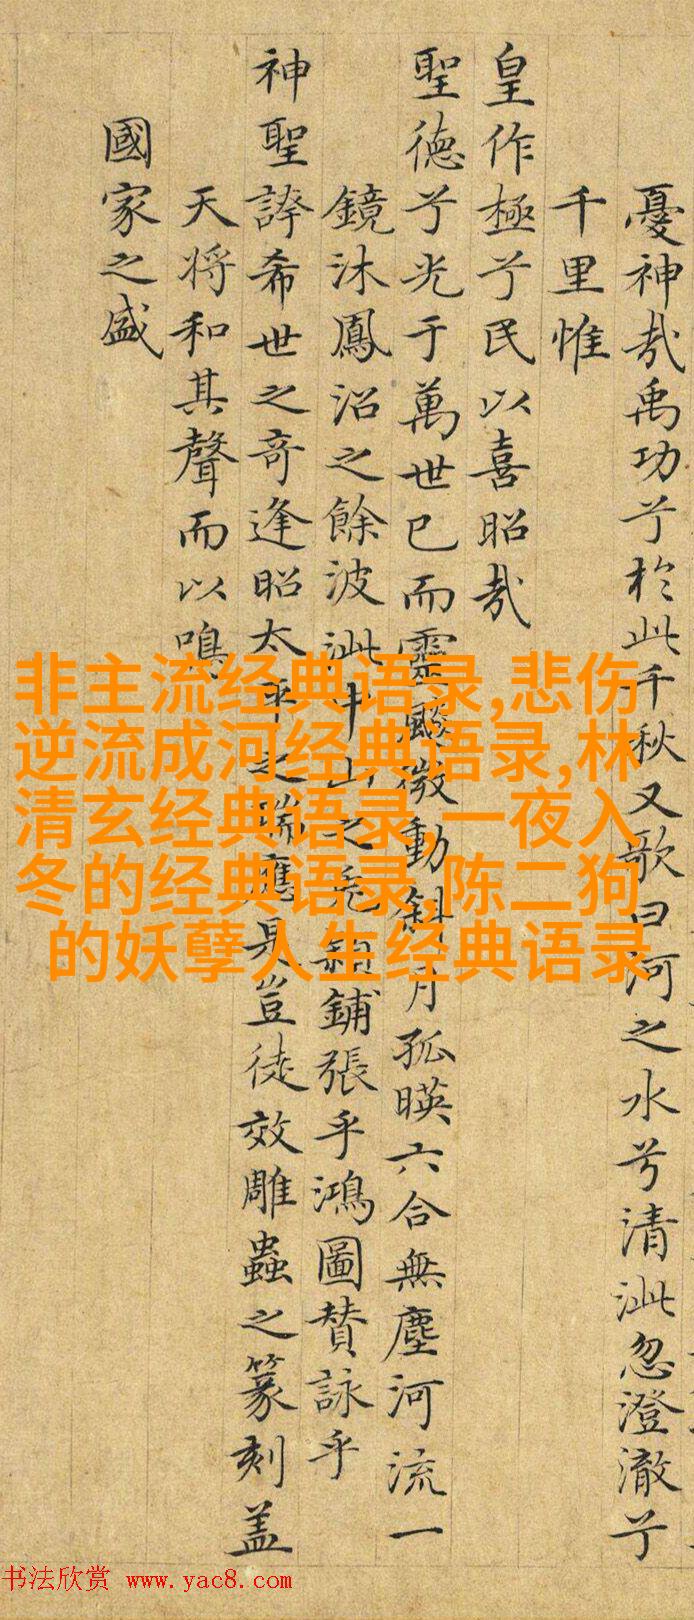 憂神哉禹功兮於此千秋又歌曰河之水兮清泚忽澄澈兮
千里惟
皇作極兮民以喜昭哉
聖德兮光于萬世已而靈飈微動斜月孤暎六合無塵河流一
鏡沐鳳沼之餘波泚中山之毫穎鋪張乎鴻圖賛詠乎
神聖誇希世之奇逢昭太平之瑞應是豈徒效雕蟲之篆刻盖
天将和其聲而以鳴
國家之盛
非主流经典语录,悲伤
逆流成河经典语录,林
清玄经典语录,一夜入
冬的经典语录,陈二狗
的妖孽人生经典语录
书法欣赏 www.yac8.com